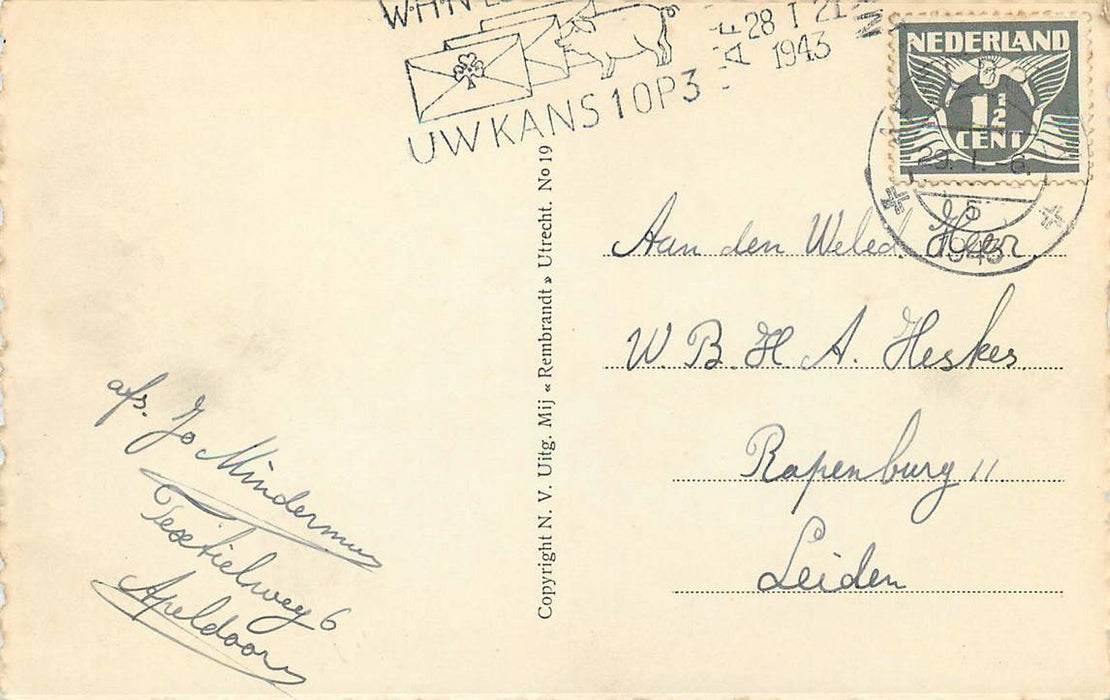 W.H.N.
28 I 21
1943
UW KANS 1 OP 3
NEDERLAND
1½
CENT
29. 1. - 6.
1943
Aan den Weled. Heer.
W. B. H. A. Heskes.
Rapenburg 11.
Leiden
afs. Jo
Textielweg 6
Apeldoorn
Copyright N. V. Uitg. Mij « Rembrandt » Utrecht. No 19